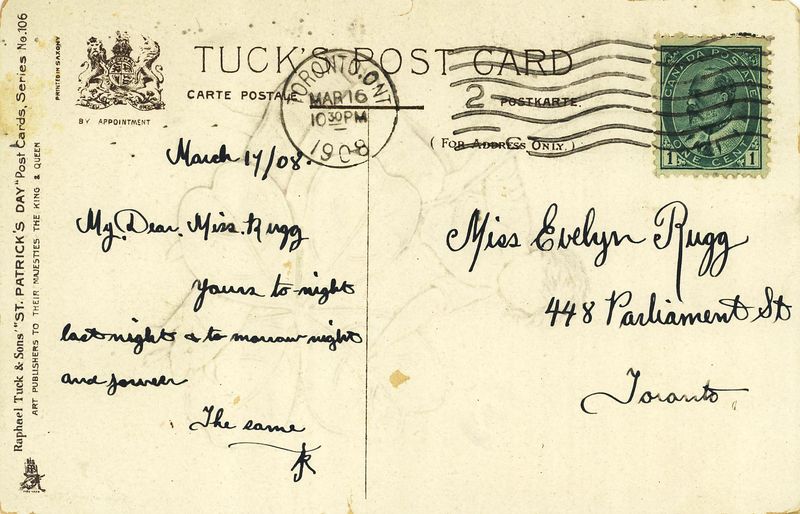 TUCK'S POST CARD
CARTE POSTALE
POSTKARTE.
(FOR ADDRESS ONLY.)
BY APPOINTMENT
PRINTED IN SAXONY
Raphael Tuck & Sons' "ST. PATRICK'S DAY" Post Cards, Series No. 106
ART PUBLISHERS TO THEIR MAJESTIES THE KING & QUEEN
TORONTO. ONT
MAR 16
10 30 PM
1908
2
C
CANADA POSTAGE
1 ONE CENT 1
March 17/08.
My Dear Miss. Rugg
Yours to-night
last night & to morrow night
and forever
The same
JR
Miss Evelyn Rugg
448 Parliament St
Toronto